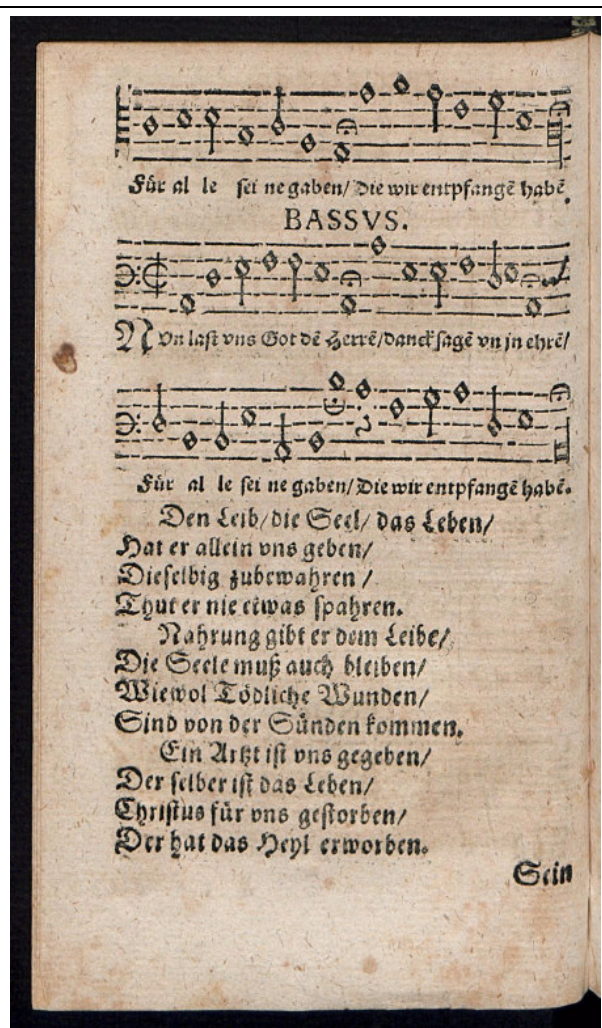 Für al le sei ne gaben/ Die wir entpfangẽ habẽ.
BASSVS.
NVn last vns Got dẽ Herrẽ/ danck sagẽ vn jn ehrẽ/
Für al le sei ne gaben/ Die wir entpfangẽ habẽ.
Den Leib/ die Seel/ das Leben/
Hat er allein vns geben/
Dieselbig zubewahren /
Thut er nie etwas spahren.
Nahrung gibt er dem Leibe/
Die Seele muß auch bleiben/
Wiewol Tödliche Wunden/
Sind von der Sünden kommen.
Ein Artzt ist vns gegeben/
Der selber ist das Leben/
Christus für vns gestorben/
Der hat das Heyl erworben.
Sein